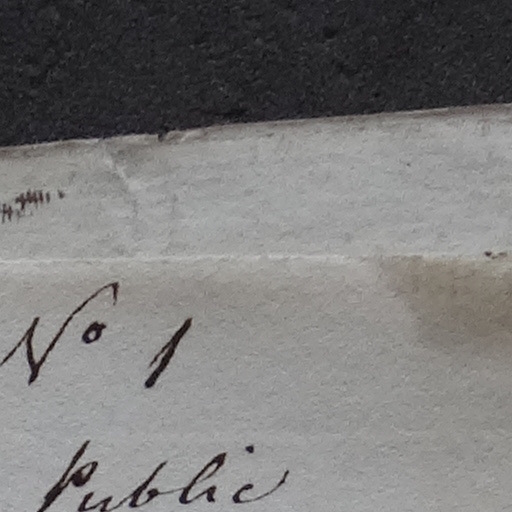 Nº 1
Public